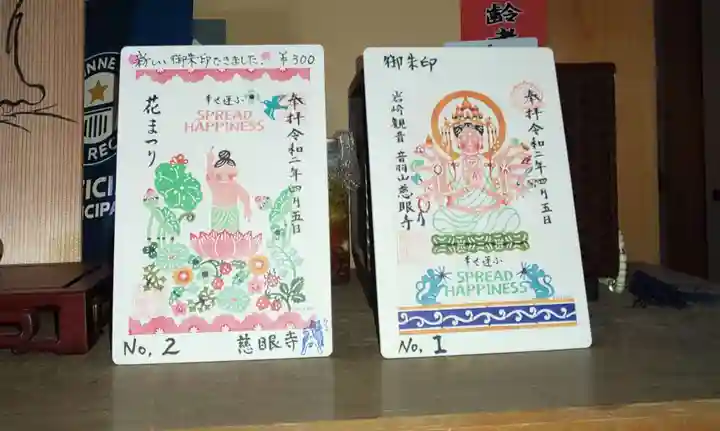 新しい御朱印できました。 ¥300
幸せ運ぶ
SPREAD
HAPPINESS
奉拝 令和二年四月五日
花まつり
No, 2
慈眼寺
御朱印
奉拝 令和二年四月五日
岩崎観音 音羽山慈眼寺
幸せ運ぶ
SPREAD
HAPPINESS
No, 1
NNE
REC
ICI
CIPA
齢者